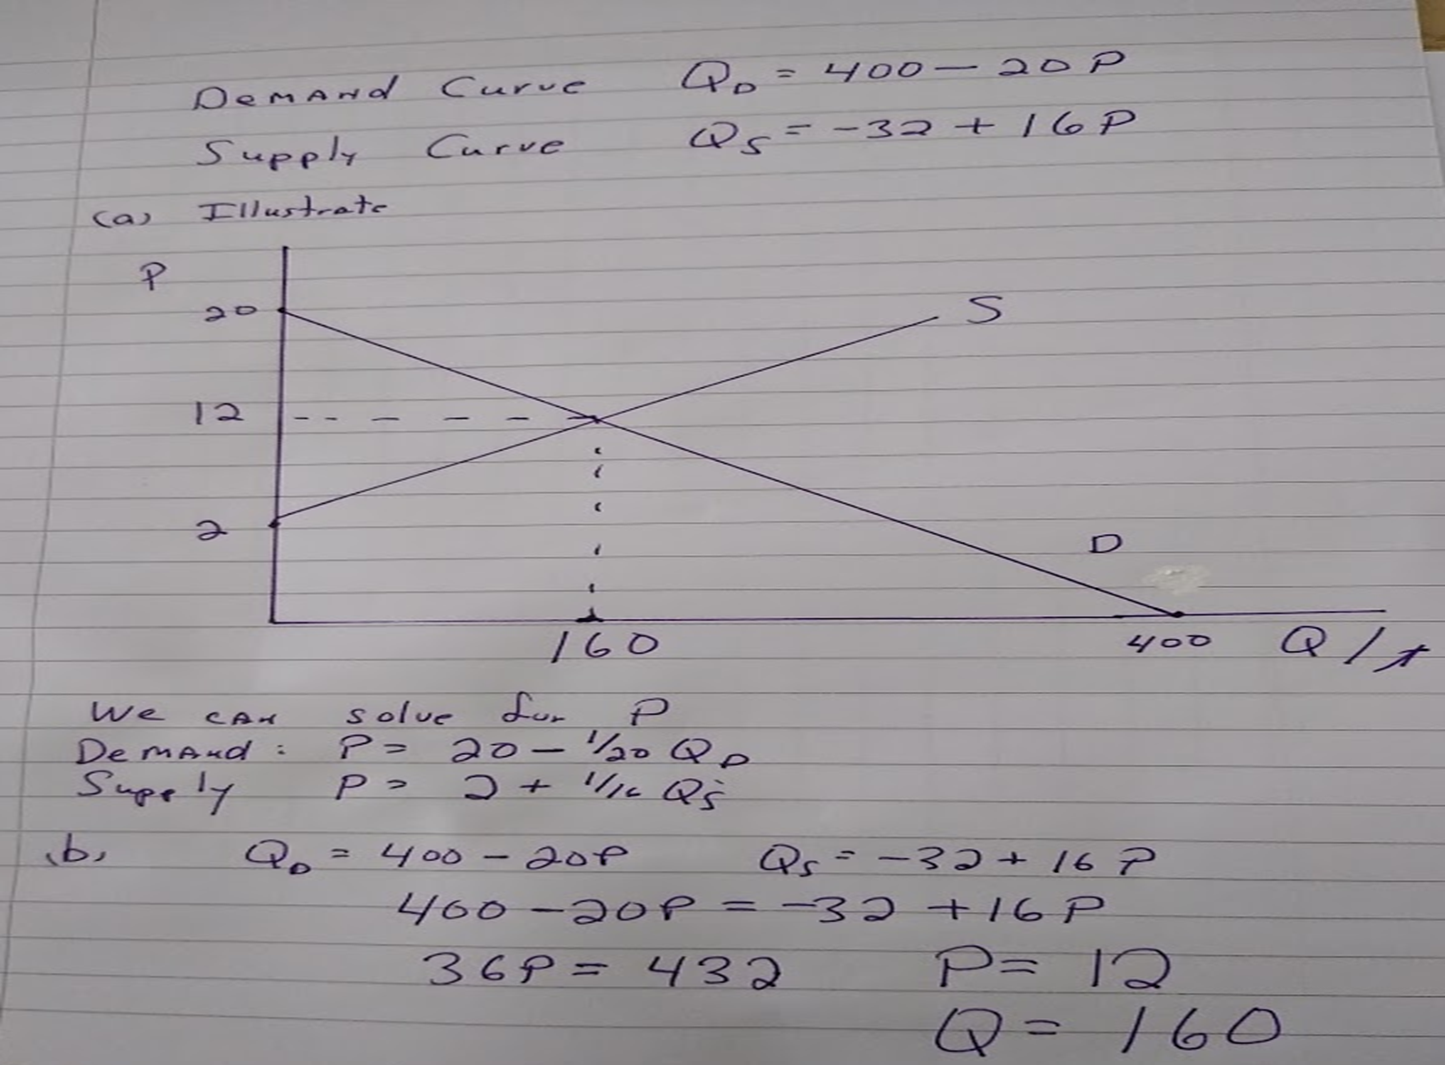 Demand Curve QD = 400 - 20P
Supply Curve QS = -32 + 16P
(a) Illustrate
P
20
S
12
2
D
160
400 Q/t
We can solve for P
Demand: P = 20 - 1/20 QD
Supply P = 2 + 1/16 QS
(b) QD = 400 - 20P QS = -32 + 16P
400 - 20P = -32 + 16P
36P = 432 P = 12
Q = 160